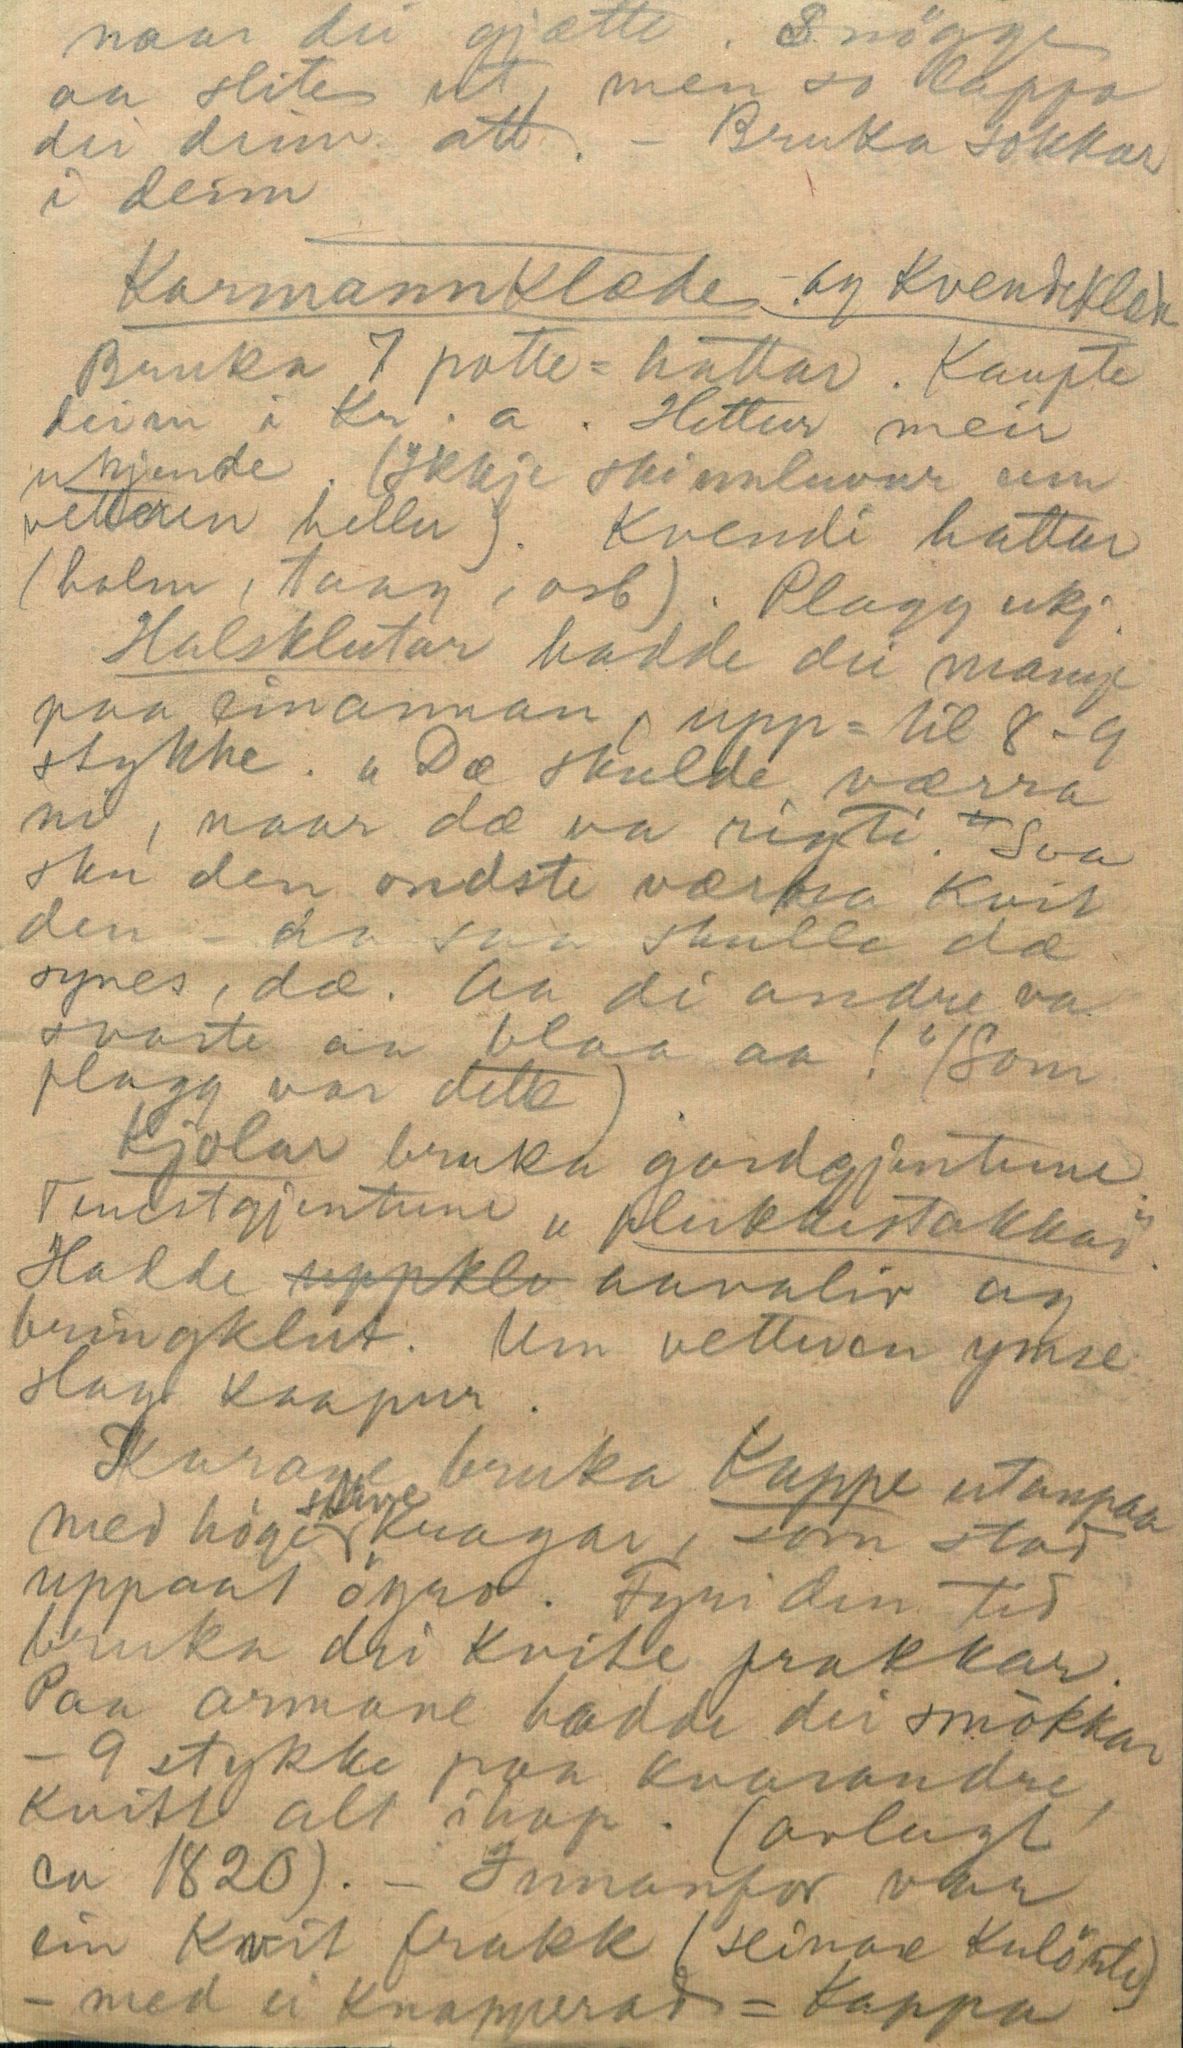 naar dei gjætte. Snögge
aa slite ut, men so lappa
dei deim att. - Bruka sokkar
i deim
Karmannklæde og Kvendeklæde
Bruka 7 potte=hattar. Kaupte
deim i Kr.a. Hettur meir
ukjende. (Ikkje skinnluvur um
vetteren heller). Kvendi hattar
(halm, taag, osb). Plagg ukj.
Halsklutar hadde dei mange
paa einannan, upp=til 8-9
stykke. "Dæ skulde værra
ni, naar dæ va rigti." Saa
sku den ondste værra kvit
den - aa saa skulle dæ
synes, dæ. Aa di andre va
svarte aa blaa aa!" (Som
plagg var dette)
Kjolar bruka gardgjentune.
Tenestgjentune "plukkestakkar".
Hadde uppklo aavaliv og
bringklut. Um vetteren ymse
slag kaapur.
Karane bruka Kappe utanpaa
med höge stive kragar, som stod
uppaat öyro. Fyri den tid
bruka dei kvite frakkar.
Paa armane hadde dei smökkar
- 9 stykke paa kvarandre,
kvitt alt ihop. (avlagt
ca 1820). - Innanfor var
ein kvit frakk (seinare kulörte)
- med ei knapperad = Kappa